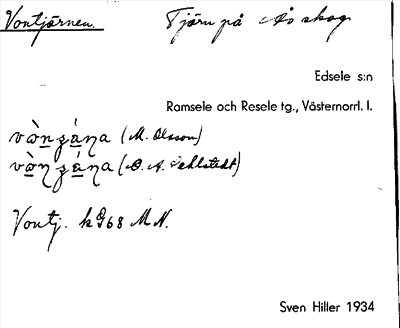 Vontjärnen. Tjärn på Ås skog
Edsele s:n
Ramsele och Resele tg., Västernorrl. l.
(M. Olsson)
(O. A. Sehlstedt)
Vontj. MN.
Sven Hiller 1934